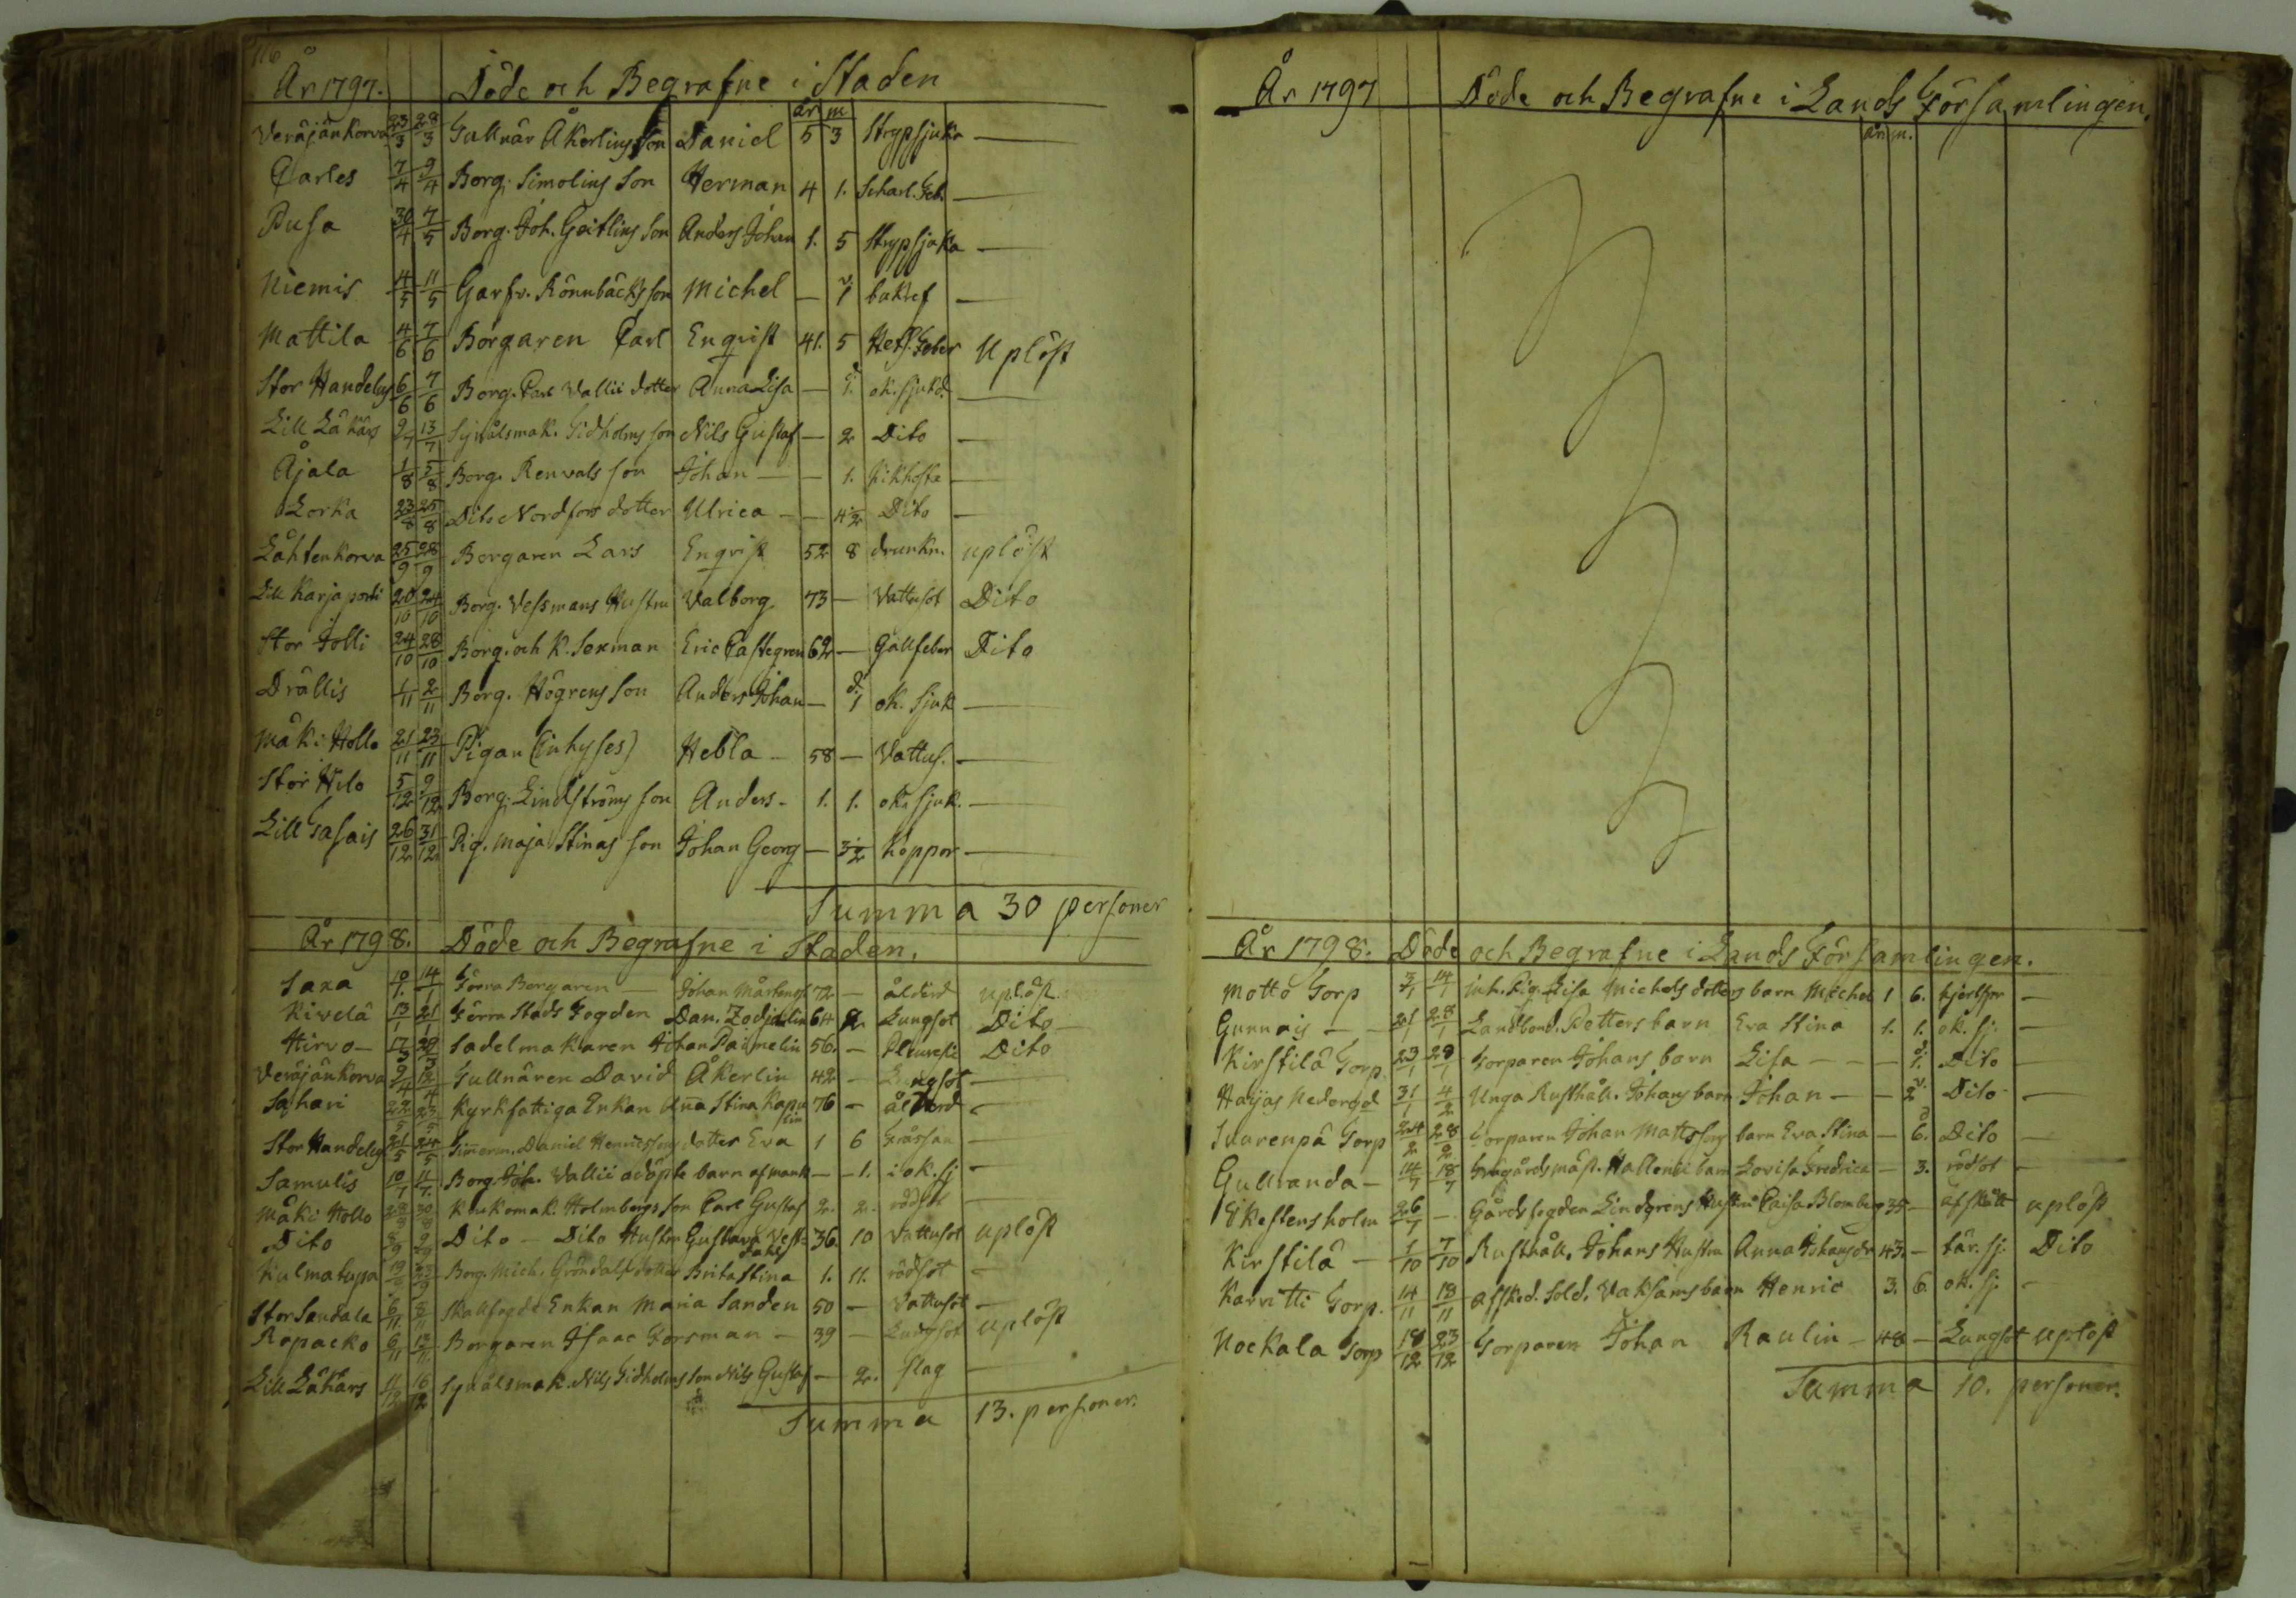 116
År 1797. Döde och Begrafne i Staden
år m
Veräjänkorva 23/3 28/3 Gullnär Åkerlins Son Daniel 5 3 Strypsjuka —
Carles 7/4 9/4 Borg. Simolins Son Herman 4 1. Scharl. Feb. —
Pusa 30/4 7/5 Borg. Joh. Geitlins Son Anders Johan 1. 5 Strypsjuka —
Niemis 4/5 11/5 Garfv. Rönnbäcks son Michel — v. 1 bukref —
Mattila 4/6 7/6 Borgaren Carl Enqvist 41. 5 Hets. Feber Uplöst
Stor Handelus 6/6 7/6 Borg. Carl Vallii dotter Anna Lisa — d. 1. ok. sjukd. —
Lill Läkärs 9/7 13/7 Synålsmak. Lidholms son Nils Gustaf — 2 Dito —
Äjälä 1/8 5/8 Borg. Renvals son Johan — — 1. Kikhosta —
Lorka 23/8 25/8 Dito Nordfors dotter Ulrica — — 4½ Dito —
Lähtenkorva 25/9 28/9 Borgaren Lars Enqvist 52 8 drunkn. uplöst
Lill Karjaportti 20/10 24/10 Borg. Vessmans Hustru Valborg 73 — Vattusot Dito
Stor Jolli 24/10 28/10 Borg. och K. Sexman Eric Castegren 62 — Gallfeber Dito
Drällis 1/11 2/11 Borg. Högrens son Anders Johan — d. 1 ok. sjuk —
Mäki Hollo 21/11 23/11 Pigan (inhyses) Hebla — 58 — Vattus. —
Stor Hilo 5/12 9/12 Borg. Lindströms son Anders — 1. 1. ok. sjuk. —
Lill Sasais 26/12 31/12 Pig. Maja Stinas son Johan Georg — 3½ Koppor —
Summa 30 personer
År 1798. Döde och Begrafne i Staden.
Saxa 10/1 14/1 Förra Borgaren — Johan Mårtenss. 72 — ålderd uplöst
Kivelä 13/1 21/1 Förra Stads Fogden Dan. 64 2 Lungsot Dito
Hirvo — 17/3 Sadelmakaren Johan Paimelin 56. — Pleuresie Dito
Veräjänkorva 9/4 12/4 Gullnären David Åkerlin 42 — Lungsot —
Sahari 22/5 23/5 Kyrkfattiga Enkan Anna Stina 76 — ålderd —
Stor Handelus 21/5 24/5 Timerm. Daniel Henricssons dotter Eva 1 6 Fråssan —
Samulis 10/7 11/7 Borg. Joh. Vallii odöpte barn af mank — 1. i ok. sj —
Mäki Hollo 28/8 30/8 Holmbergs son Carl Gustaf 2. 2. rödsot —
Dito 8/9 Dito — Dito Hustru Gustava Vest- 36 10 Vattusot uplöst
Kulmatupa 19/9 23/9 Borg. Mich. Gröndals dotter Brita Stina 1. 11. rödsot —
Stor Sandala 6/11 8/11 Enkan Maria Sanden 50 — Vattusot —
Rapacko 6/11 13/11 Borgaren Isaac Forsman — 39 — Lungsot uplöst
Lill Läkärs 11/12 16/12 Synålsmak. Nils Lidholms son Nils Gustaf — 2. slag —
Summa 13. personer.
År 1797 Döde och Begrafne i Lands Församlingen.
år m.
År 1798. Döde och Begrafne i Lands Församlingen.
Motto Torp 3/1 14/1 inh. Pig. Lisa Michels dotters barn Michel 1 6. —
Gunnais — 21/1 28/1 Landbond. Petters barn Eva Stina 1. 1. ok. sj. —
Kirstilä Torp 23/1 28/1 Torparen Johans barn Lisa — — d. 1. Dito —
Haijas Nedergd 31/1 4/2 Unga Rusthåll. Johans barn Johan — — v. 2 Dito —
Suurenpä Torp 24/2 28/2 Torparen Johan Mattssons barn Eva Stina — d 6. Dito —
Gullranda — 14/7 18/7 Trägårdsmäst. barn Lovisa Fredrica — 3. rödsot —
Ekestensholm 26/7 — Gårdsfogden Lindgrens Hustru Caisa Blomberg 35 — afskått uplöst
Kirstilä — 1/10 7/10 Rusthåll. Johans Hustru Anna Johansdr 43. — tär. sj. Dito
Karvitti Torp. 14/11 18/11 afsked. Sold. Vaksams barn Henric 3. 6. ok. sj. —
Nockala Torp 18/12 23/12 Torparen Johan Raulin — 48 — Lungsot uplöst
Summa 10. personer.